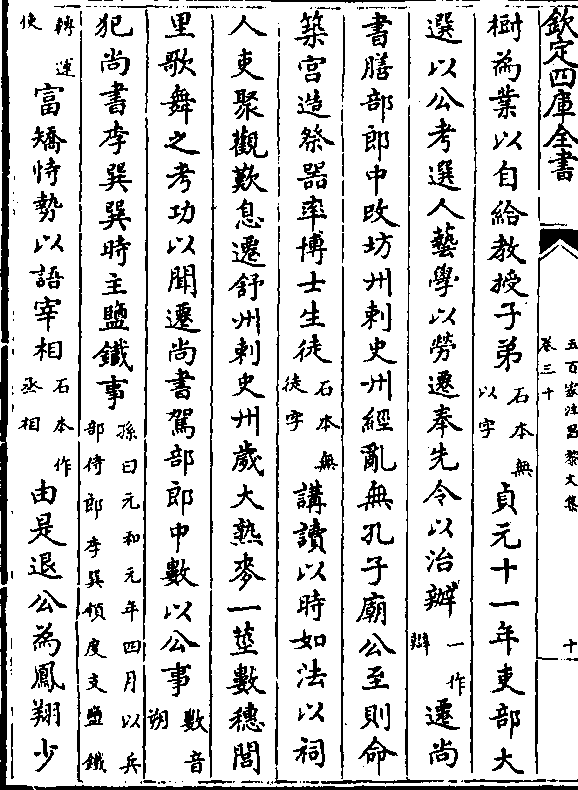 欽定四庫全書
五百家注昌黎文集
卷三十
十
樹為業以自給教授子弟石本無以字貞元十一年吏部大
選以公考選人藝學以勞遷奉先令以治辦一作辯遷尚
書膳部郎中改坊州刺史州經亂無孔子廟公至則命
築宫造祭器率博士生徒石本無徒字講讀以時如法以祠
人吏聚觀歎息遷舒州刺史州歲大熟麥一莖數穗閭
里歌舞之考功以聞遷尚書駕部郎中數以公事數音朔
犯尚書李巽巽時主鹽鐵事孫曰元和元年四月以兵部侍郎李巽領度支鹽鐵
轉運使富矯恃勢以語宰相石本作丞相由是退公為鳳翔少